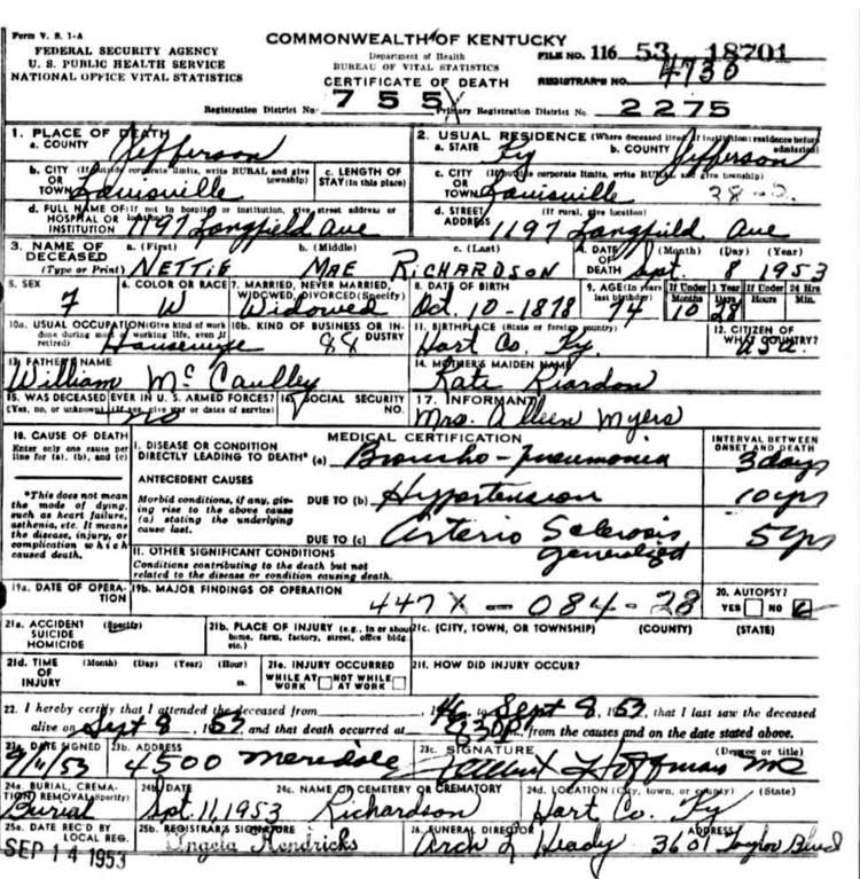 Form V. S. 1-A
FEDERAL SECURITY AGENCY
U. S. PUBLIC HEALTH SERVICE
NATIONAL OFFICE VITAL STATISTICS
COMMONWEALTH OF KENTUCKY
Department of Health
BUREAU OF VITAL STATISTICS
CERTIFICATE OF DEATH
FILE NO. 116 53 18701
REGISTRAR'S NO. 4730
Registration District No. 755 Primary Registration District No. 2275
1. PLACE OF DEATH
a. COUNTY Jefferson
2. USUAL RESIDENCE (Where deceased lived. If institution: residence before admission)
a. STATE Ky b. COUNTY Jefferson
b. CITY (If outside corporate limits, write RURAL and give township)
OR TOWN Louisville
c. LENGTH OF STAY (in this place)
c. CITY (If outside corporate limits, write RURAL and give township)
OR TOWN Louisville
d. FULL NAME OF (If not in hospital or institution, give street address or location)
HOSPITAL OR INSTITUTION 1197 Langfield Ave
d. STREET ADDRESS (If rural, give location)
1197 Langfield Ave
3. NAME OF DECEASED (Type or Print)
a. (First) b. (Middle) c. (Last)
NETTIE MAE RICHARDSON
4. DATE OF DEATH (Month) (Day) (Year)
Sept. 8 1953
5. SEX
F
6. COLOR OR RACE
W
7. MARRIED, NEVER MARRIED, WIDOWED, DIVORCED (Specify)
Widowed
8. DATE OF BIRTH
Oct. 10-1878
9. AGE (In years last birthday) If Under 1 Year Months Days If Under 24 Hrs Hours Min.
74 10 28
10a. USUAL OCCUPATION (Give kind of work done during most of working life, even if retired)
Housewife
10b. KIND OF BUSINESS OR INDUSTRY
88
11. BIRTHPLACE (State or foreign country)
Hart Co. Ky.
12. CITIZEN OF WHAT COUNTRY?
USA.
13. FATHER'S NAME
William McCaulley
14. MOTHER'S MAIDEN NAME
Kate Riardon
15. WAS DECEASED EVER IN U. S. ARMED FORCES?
(Yes, no, or unknown) (If yes, give war or dates of service)
no
16. SOCIAL SECURITY NO.
17. INFORMANT
Mrs. Alleen Myers
18. CAUSE OF DEATH
Enter only one cause per line for (a), (b), and (c)
*This does not mean the mode of dying, such as heart failure, asthenia, etc. It means the disease, injury, or complication which caused death.
MEDICAL CERTIFICATION
INTERVAL BETWEEN ONSET AND DEATH
I. DISEASE OR CONDITION
DIRECTLY LEADING TO DEATH* (a) Broncho-pneumonia 3 days
ANTECEDENT CAUSES
Morbid conditions, if any, giving rise to the above cause (a) stating the underlying cause last.
DUE TO (b) Hypertension 10 yrs
DUE TO (c) Arterio Sclerosis, generalized 5 yrs
II. OTHER SIGNIFICANT CONDITIONS
Conditions contributing to the death but not related to the disease or condition causing death.
19a. DATE OF OPERATION
19b. MAJOR FINDINGS OF OPERATION
447X - 084-28
20. AUTOPSY?
YES NO
21a. ACCIDENT SUICIDE HOMICIDE (Specify)
21b. PLACE OF INJURY (e.g., in or about home, farm, factory, street, office bldg. etc.)
21c. (CITY, TOWN, OR TOWNSHIP) (COUNTY) (STATE)
21d. TIME OF INJURY (Month) (Day) (Year) (Hour) m.
21e. INJURY OCCURRED
WHILE AT WORK NOT WHILE AT WORK
21f. HOW DID INJURY OCCUR?
22. I hereby certify that I attended the deceased from 1946, to Sept 8, 1953, that I last saw the deceased
alive on Sept 8, 1953, and that death occurred at m., from the causes and on the date stated above.
23a. DATE SIGNED
9/11/53
23b. ADDRESS
4500
23c. SIGNATURE (Degree or title)
Hoffman MD
24a. BURIAL, CREMATION, REMOVAL (Specify)
Burial
24b. DATE
Sept. 11, 1953
24c. NAME OF CEMETERY OR CREMATORY
Richardson
24d. LOCATION (City, town, or county) (State)
Hart Co. Ky
25a. DATE REC'D BY LOCAL REG.
SEP 14 1953
25b. REGISTRAR'S SIGNATURE
Angela Hendricks
26. FUNERAL DIRECTOR ADDRESS
Arch L Heady 3601 Taylor Blvd